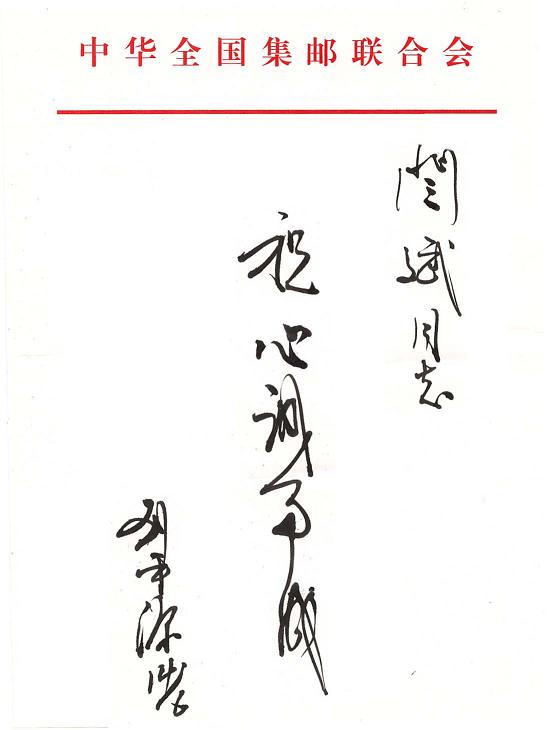 中华全国集邮联合会
闫斌同志
祝心诚事成
刘平源